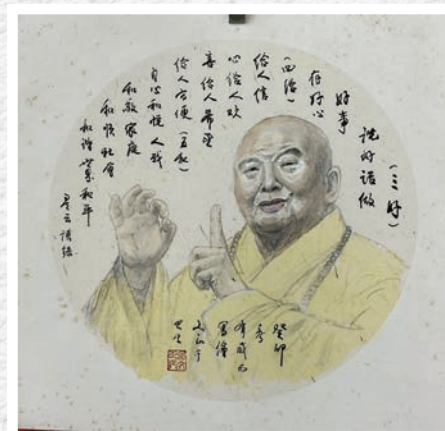 (三好)
说好话做
好事
存好心
(四给)
给人信
心给人欢
喜给人希望
给人方便(五和)
自心和悦人我
和敬家庭
和顺社會
和谐世界和平
星云语录
癸卯